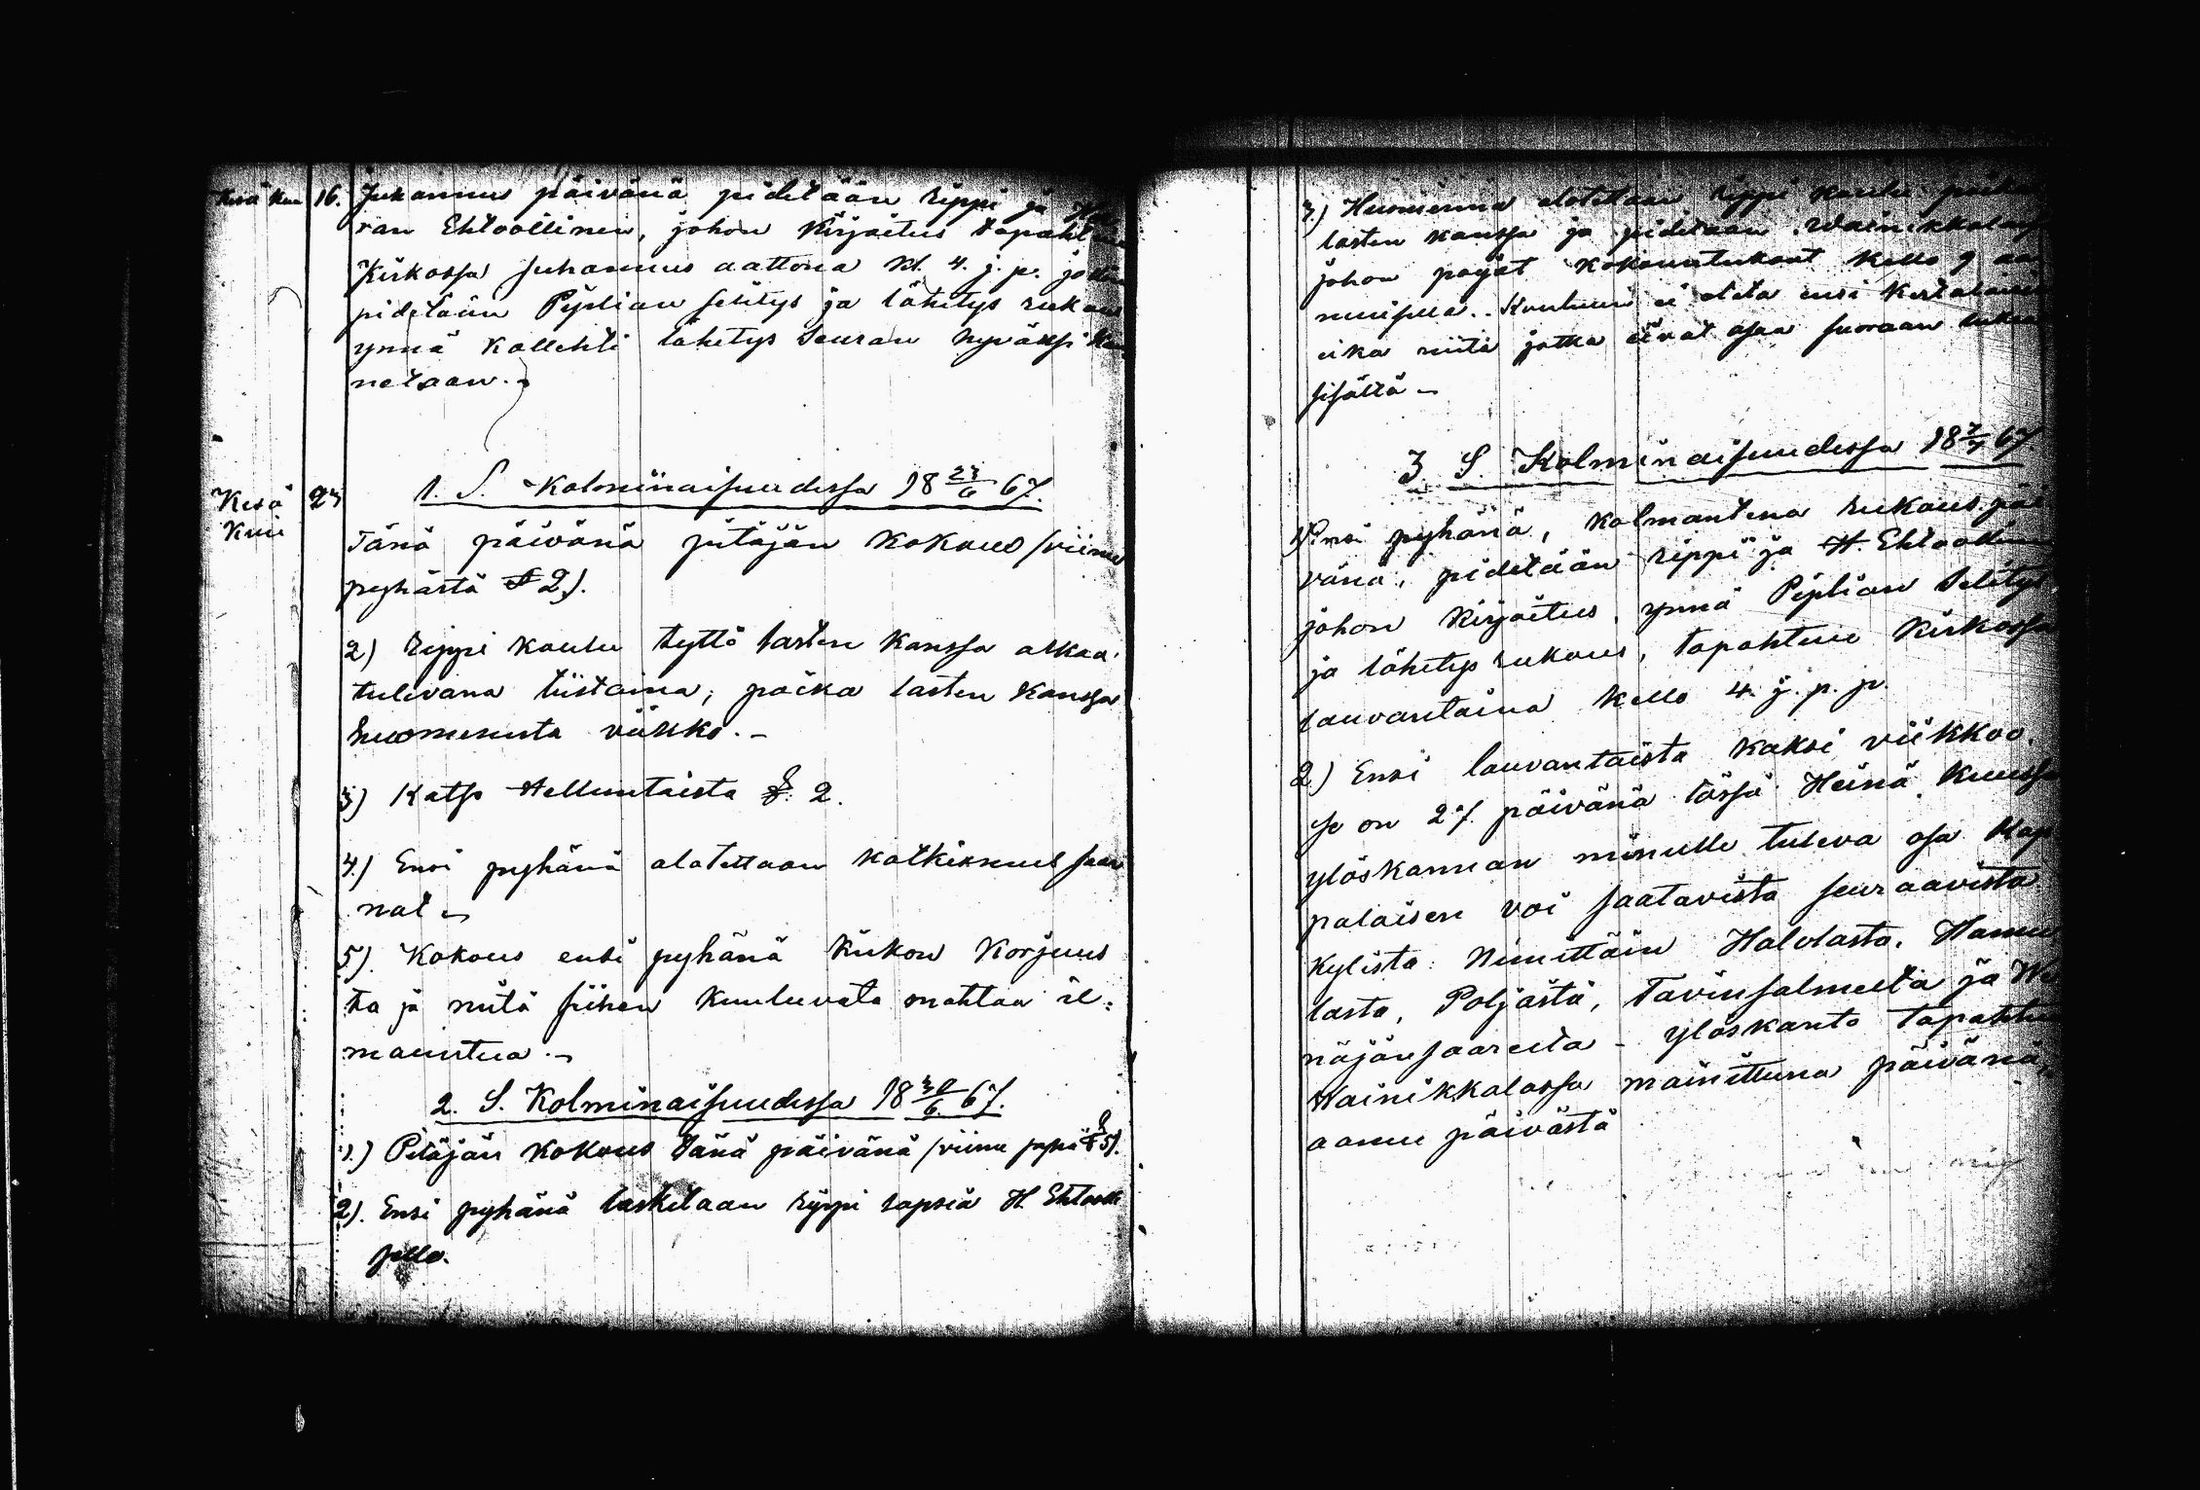 Kesä Kuu 16. Juhannus päivänä pidetään rippi ja
ran Ehtoollinen, johon Kirjoitus tapahtuu
Kirkossa Juhannus aattona Kl. 4. j. p. jolloin
pidetään Piplian selitys ja lähetys rukous
ynnä kollehti lähetys seuran hyväksi kan
netaan.
Kesä Kuu 23 1. S. Kolminaisuudessa 18 23/6 67.
Tänä päivänä pitäjän kokous (viime
pyhästä § 2).
2) rippi koulu tyttö lasten kanssa alkaa
tulevana tiistaina, poika lasten kanssa
huomenista viikko. -
3) Katso Helluntaista § 2.
4.) Ensi pyhänä alotettaan kolkiknuut saar
nat -
5). Kokous ensi pyhänä kirkon korjuus
ta ja niitä siihen kuuluvata mahtaa il=
mauntua. -
2. S. Kolminaisuudessa 18 30/6 67.
1.) Pitäjän kokous tänä päivänä (viime pyhä § 5).
2). Ensi pyhänä lasketaan rippi lapsia H. Ehtooll
selle.
3.) Huomenna alotetaan rippi koulu poika
lasten kanssa ja pidetään Wainikkalassa
johon pojat kokountukoot kello 9 aa
muisella. Kouluun ei oteta ensi kertalaisia
eikä niitä jotka eivät osaa suoraan lukea
sisältä -
3 S. Kolminaisuudessa 18 7/7 67.
1) Ensi pyhänä, kolmantena rukous päi
vänä, pidetään rippi ja H. Ehtoollinen
johon Kirjoitus, ynnä Piplian selitys
ja lähetys rukous, tapahtuu Kirkossa
lauvantaina kello 4. j. p. p.
2) Ensi lauvantaista kaksi viikkoo,
se on 27. päivänä tässä Heinä Kuussa
ylöskannan minulle tuleva osa Kap
palaisen voi saatavista seuraavista
Kylistä: Nimittäin Halolasta, Hannu
lasta, Poljasta, Tavinsalmesta ja We
näjänsaaresta - ylöskanto tapahtuu
Wainikkalassa mainittuna päivänä,
aamu päivästä